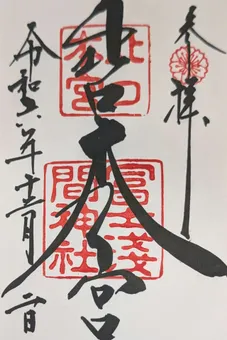 奉拝
北口本宮
北口
本宮
冨士浅
間神社
令和六年十二月二日